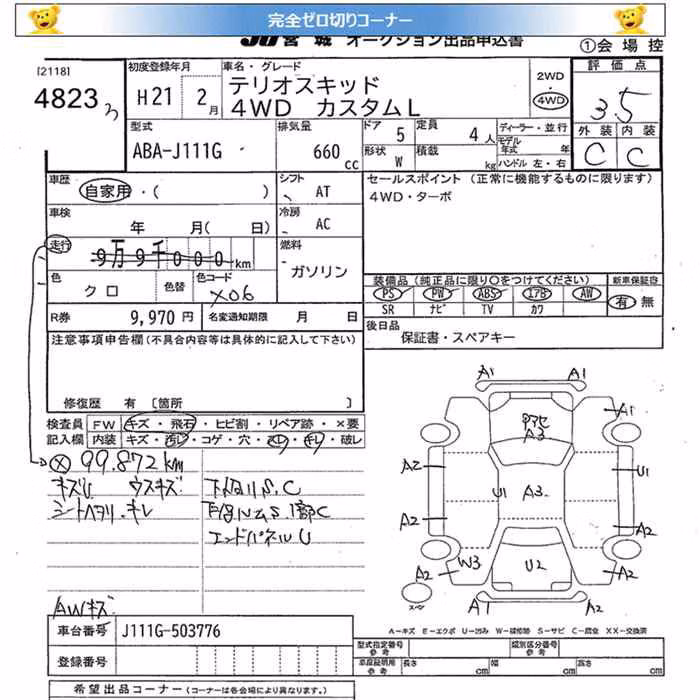 完全ゼロ切りコーナー
JU宮城 オークション出品申込書
①会場控
[2118]
4823
初度登録年月
H21 2月
車名・グレード
テリオスキッド
4WD カスタムL
2WD
4WD
評価点
3.5
外装 内装
C C
型式
ABA-J111G
排気量
660 cc
ドア 5
定員 4人
形状 W
積載 kg
ディーラー・並行
モデル年式 年
ハンドル 左・右
車歴
自家用・( )
シフト
AT
セールスポイント (正常に機能するものに限ります)
4WD・ターボ
車検
年 月( 日)
冷房
AC
走行
9万9千000km
燃料
ガソリン
色
クロ
色替
色コード
X06
装備品(純正品に限り○をつけてください)
新車保証書
PS PW ABS エアB AW
有 無
SR ナビ TV カワ
R券
9,970円
名変通知期限 月 日
後日品
保証書・スペアキー
注意事項申告欄(不具合内容等は具体的に記入して下さい)
修復歴 有 〔箇所
検査員記入欄
FW キズ・飛石・ヒビ割・リペア跡・×要
内装 キズ・汚レ・コゲ・穴・スレ・キレ・破レ
99.872km
キズU ウスキズ
下廻りS.C
シートヘタリ.キレ
エンドパネルU
AWキズ
A1 A1
A1
A3
A2
U1
U1
A3
A2
A2
W3
U2
A2
A2
A1
A2
スペア
車台番号
J111G-503776
登録番号
A-キズ E-エクボ U-凹み W-補修跡 S-サビ C-腐食 XX-交換済
型式指定番号 参考
類別区分番号 参考
車庫証明用 参考
長さ cm
幅 cm
高さ cm
希望出品コーナー(コーナーは各会場により異なります。)